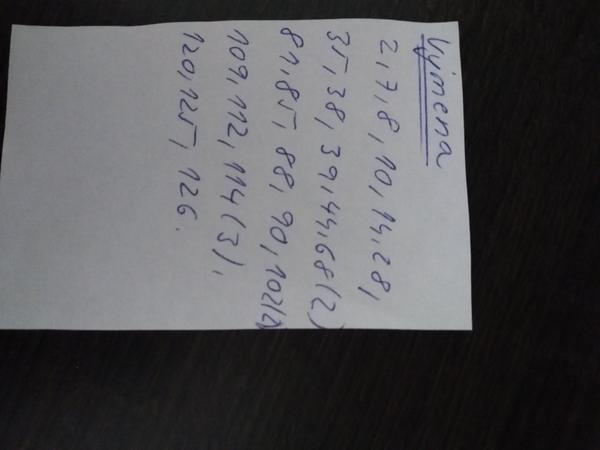 Výmena
2, 7, 8, 10, 14, 28,
35, 38, 39, 44, 68(2)
81, 85, 88, 90, 102(2)
109, 112, 114(3),
120, 125, 126.